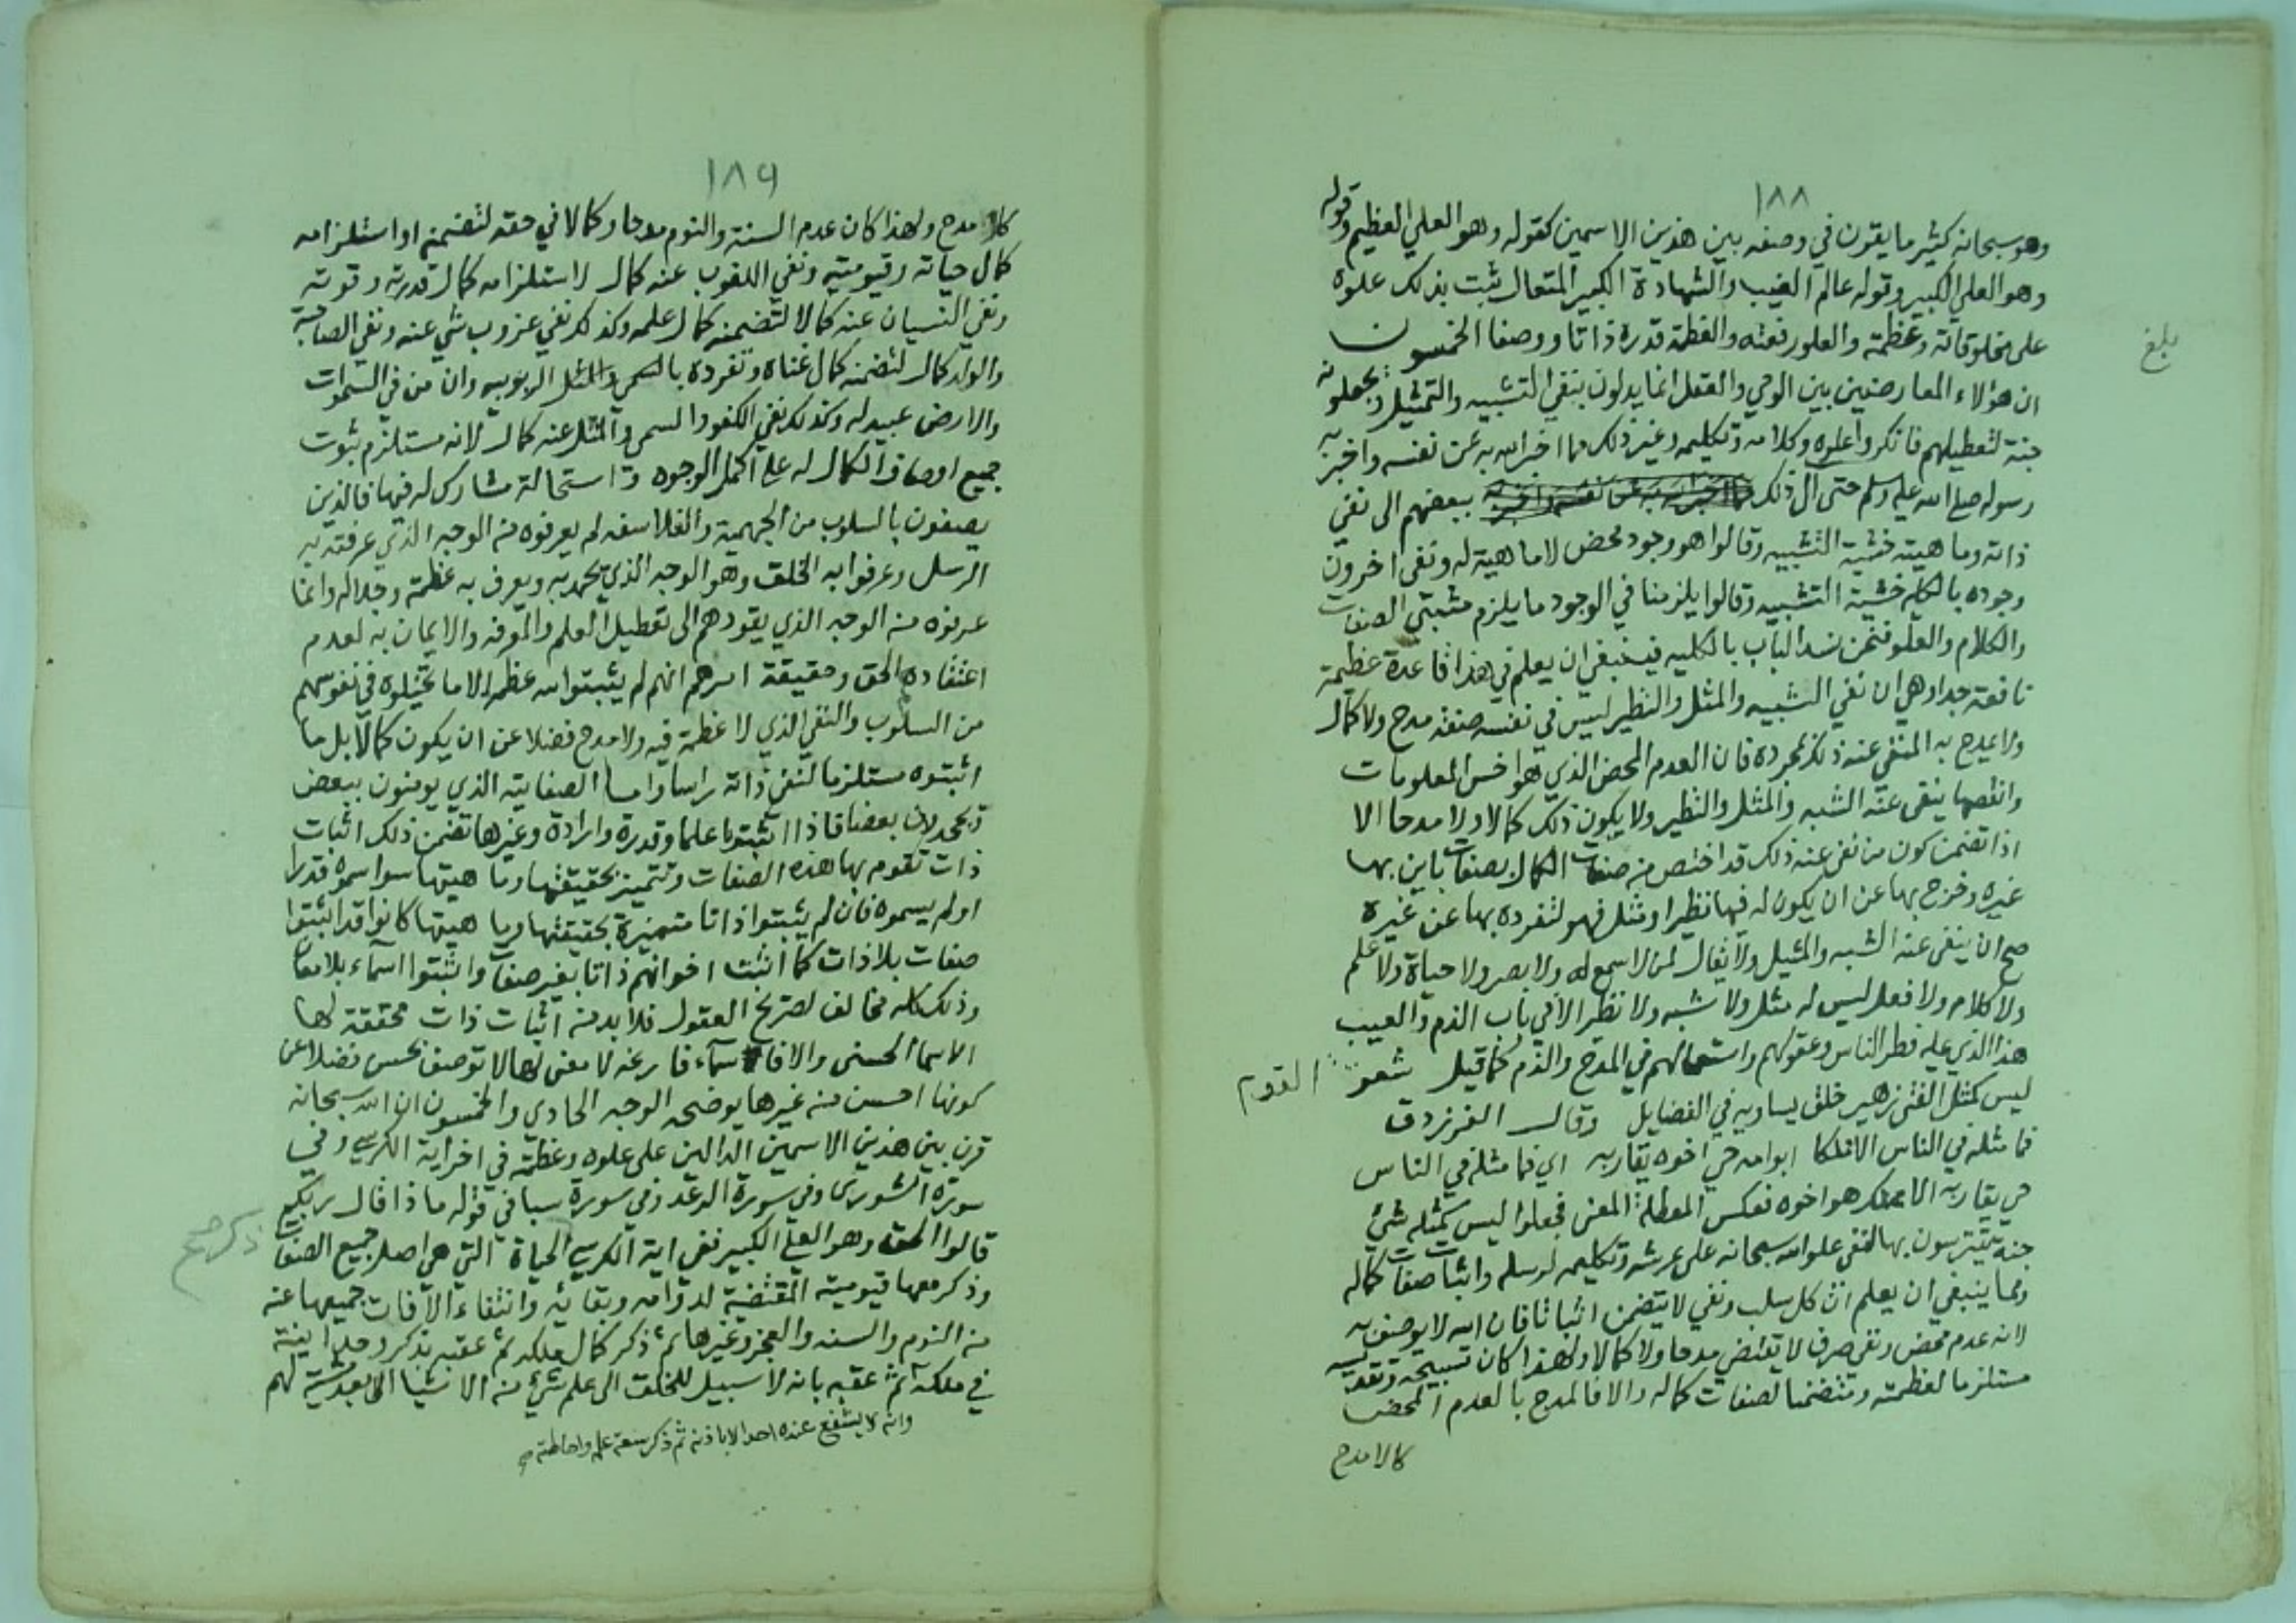 ١٨٨
وهو سبحانه كثير ما يقون في وصفه بين هذين الاسمين كقوله وهو العلي العظيم وقوله
وهو العلي الكبير وقوله عالم الغيب والشهادة الكبير المتعال يثبت بذلك علوه
على مخلوقاته وعظمته والعلو رفعته والعظمة قدره ذاتا ووصفا الخمسون
ان هؤلاء المعارضين بين الوحي والعقل انما يدلون بنفي التشبيه والتمثيل ويجعلونه
جنة لتعطيلهم فانكروا علوه وكلامه وتكليمه وغير ذلك مما اخبر الله به عن نفسه واخبر به
رسوله صلى الله عليه وسلم حتى ال ذلك مما اخبر الله به عن نفسه واخبر به ببعضهم الى نفي
ذاته وماهيته خشية التشبيه وقالوا هو وجود محض لا ماهية له ونفى اخرون
وجوده بالكلية خشية التشبيه وقالوا يلزمنا في الوجود ما يلزم مثبتي الصفات
والكلام والعلو فنحن نسد الباب بالكليه فينبغي ان يعلم في هذا قاعدة عظيمة
نافعة جدا وهي ان نفي الشبيه والمثل والنظير ليس في نفسه صفة مدح ولا كمال
ولا يمدح به المنفي عنه ذلك بمجرده فان العدم المحض الذي هو اخس المعلومات
وانقصها ينفى عنه الشبه والمثل والنظير ولا يكون ذلك كمالا ولا مدحا الا
اذا تضمن كون من نفي عنه ذلك قد اختص من صفات الكمال بصفات باين بها
غيره وخرج بها عن ان يكون له فيها نظير او مثل فهو لتفرده بها عن غيره
صح ان ينفى عنه الشبه والمثيل ولا يقال لمن لا سمع له ولا بصر ولا حياة ولا علم
ولا كلام ولا فعل ليس له مثل ولا شبه ولا نظير الا في باب الذم والعيب
هذا الذي عليه فطر الناس وعقولهم واستعمالهم في المدح والذم كما قيل شعر القوم
ليس كمثل الفتى زهير خلق يساويه في الفضايل وقال الفرزدق
فما مثله في الناس الا مملكا ابو امه حي اخوه يقاربه اي فما مثله في الناس
حي يقاربه الا مملك هو اخوه فعكس المعطلة المعنى فجعلوا ليس كمثله شئ
جنة يتترسون بها لنفي علو الله سبحانه على عرشه وتكليمه لرسله واثبات صفات كماله
ومما ينبغي ان يعلم ان كل سلب ونفي لا يتضمن اثباتا فان الله لا يوصف به
لانه عدم محض ونفي صرف لا يقتضي مدحا ولا كمالا ولهذا كان تسبيحه وتقديسه
مستلزما لعظمته ومتضمنا لصفات كماله والا فالمدح بالعدم المحض
كالا مدح
بلغ
١٨٩
كلا مدح ولهذا كان عدم السنة والنوم مدحا وكمالا في حقه لتضمنه او استلزامه
كمال حياته وقيوميته ونفي اللغوب عنه كمال لاستلزامه كمال قدرته وقوته
ونفي النسيان عنه كمالا لتضمنه كمال علمه وكذلك نفي عزوب شي عنه ونفي الصاحبة
والولد كمال لتضمنه كمال غناه وتفرده بالربوبيه وان من في السموات
والارض عبيد له وكذلك نفي الكفو والسمي والمثل عنه كمال لانه مستلزم ثبوت
جميع اوصاف الكمال له على اكمل الوجوه واستحالة مشارك له فيها فالذين
يصفون بالسلوب من الجهمية والفلاسفه لم يعرفوه من الوجه الذي عرفته به
الرسل وعرفوا به الخلق وهو الوجه الذي يحمد به ويعرف به عظمته وجلاله وانما
عرفوه من الوجه الذي يقودهم الى تعطيل العلم والمعرفه والايمان به لعدم
اعتقاده الحق وحقيقة امرهم انهم لم يثبتوا لله عظمة الا ما تخيلوه في نفوسهم
من السلوب والنفي الذي لا عظمة فيه ولا مدح فضلا عن ان يكون كمالا بل ما
اثبتوه مستلزما لنفي ذاته راسا واما الصفاتية الذي يومنون ببعض
ويجحدون بعضا فاذا اثبتوا علما وقدرة وارادة وغيرها تضمن ذلك اثبات
ذات تقوم بها هذه الصفات وتتميز بحقيقتها وماهيتها سوا سموه قدرا
او لم يسموه فان لم يثبتوا ذاتا متميزة بحقيقتها وماهيتها كانوا قد اثبتوا
صفات بلا ذات كما اثبت اخوانهم ذاتا بغير صفات واثبتوا اسماء بلا معان
وذلك كله مخالف لصريح العقول فلا بد من اثبات ذات محققة لها
الاسما الحسنى والا فاسماء فارغه لا معنى لها لا توصف بحسن فضلا عن
كونها احسن من غيرها يوضحه الوجه الحادي والخمسون ان الله سبحانه
قرن بين هذين الاسمين الدالين على علوه وعظمته في اخر اية الكرسي وفي
سورة الشورى وفي سورة الرعد وفي سورة سبا في قوله ماذا قال ربكم
قالوا الحق وهو العلي الكبير ففي اية الكرسي الحياة التي هي اصل جميع الصفات
ذكر صح
وذكر معها قيوميته المقتضية لدوامه وبقائه وانتفاء الآفات جميعها عنه
من النوم والسنه والعجز وغيرها ثم ذكر كمال ملكه ثم عقبه بذكر وحدانيته
في ملكه ثم عقبه بانه لا سبيل للخلق الى علم شئ من الاشيا الا بعد مشيئته لهم
وانه لا يشفع عنده احد الا باذنه ثم ذكر سعة علمه واحاطته صح